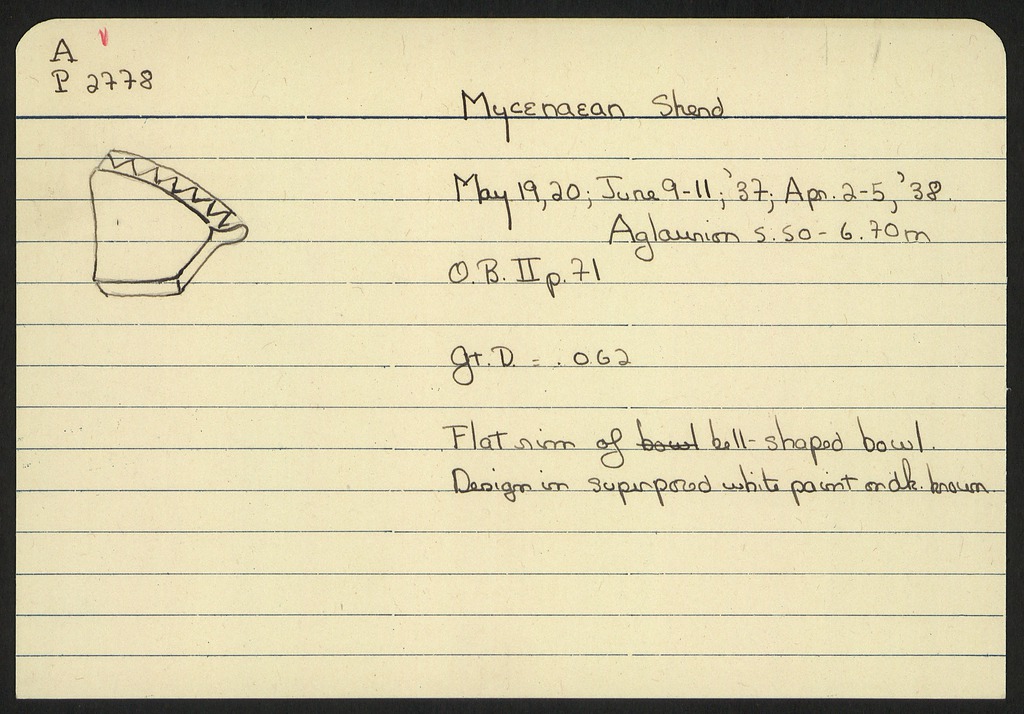 A
P 2778
Mycenaean Sherd
May 19, 20; June 9-11, '37; Apr. 2-5, '38.
Aglaurion 5.50 - 6.70m
O.B. II p. 71
Gr. D. = .062
Flat rim of bowl bell-shaped bowl.
Design in superposed white paint on dk. brown